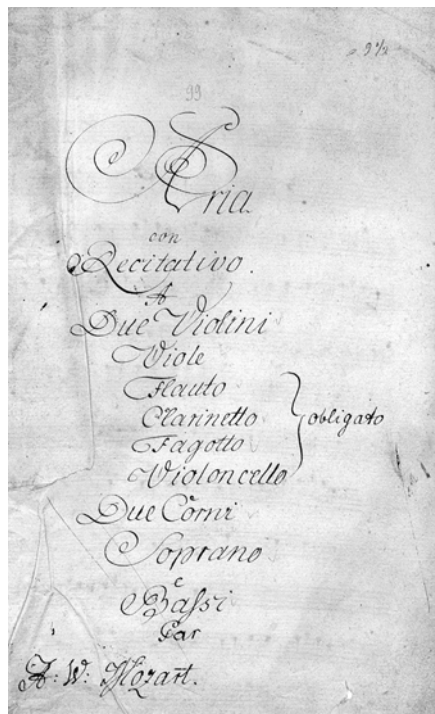 99
Aria
con
Recitativo.
A
Due Violini
Viole
Flauto
Clarinetto
Fagotto
Violoncello
obligato
Due Corni
Soprano
e
Bassi
Par
A: W: Mozart.